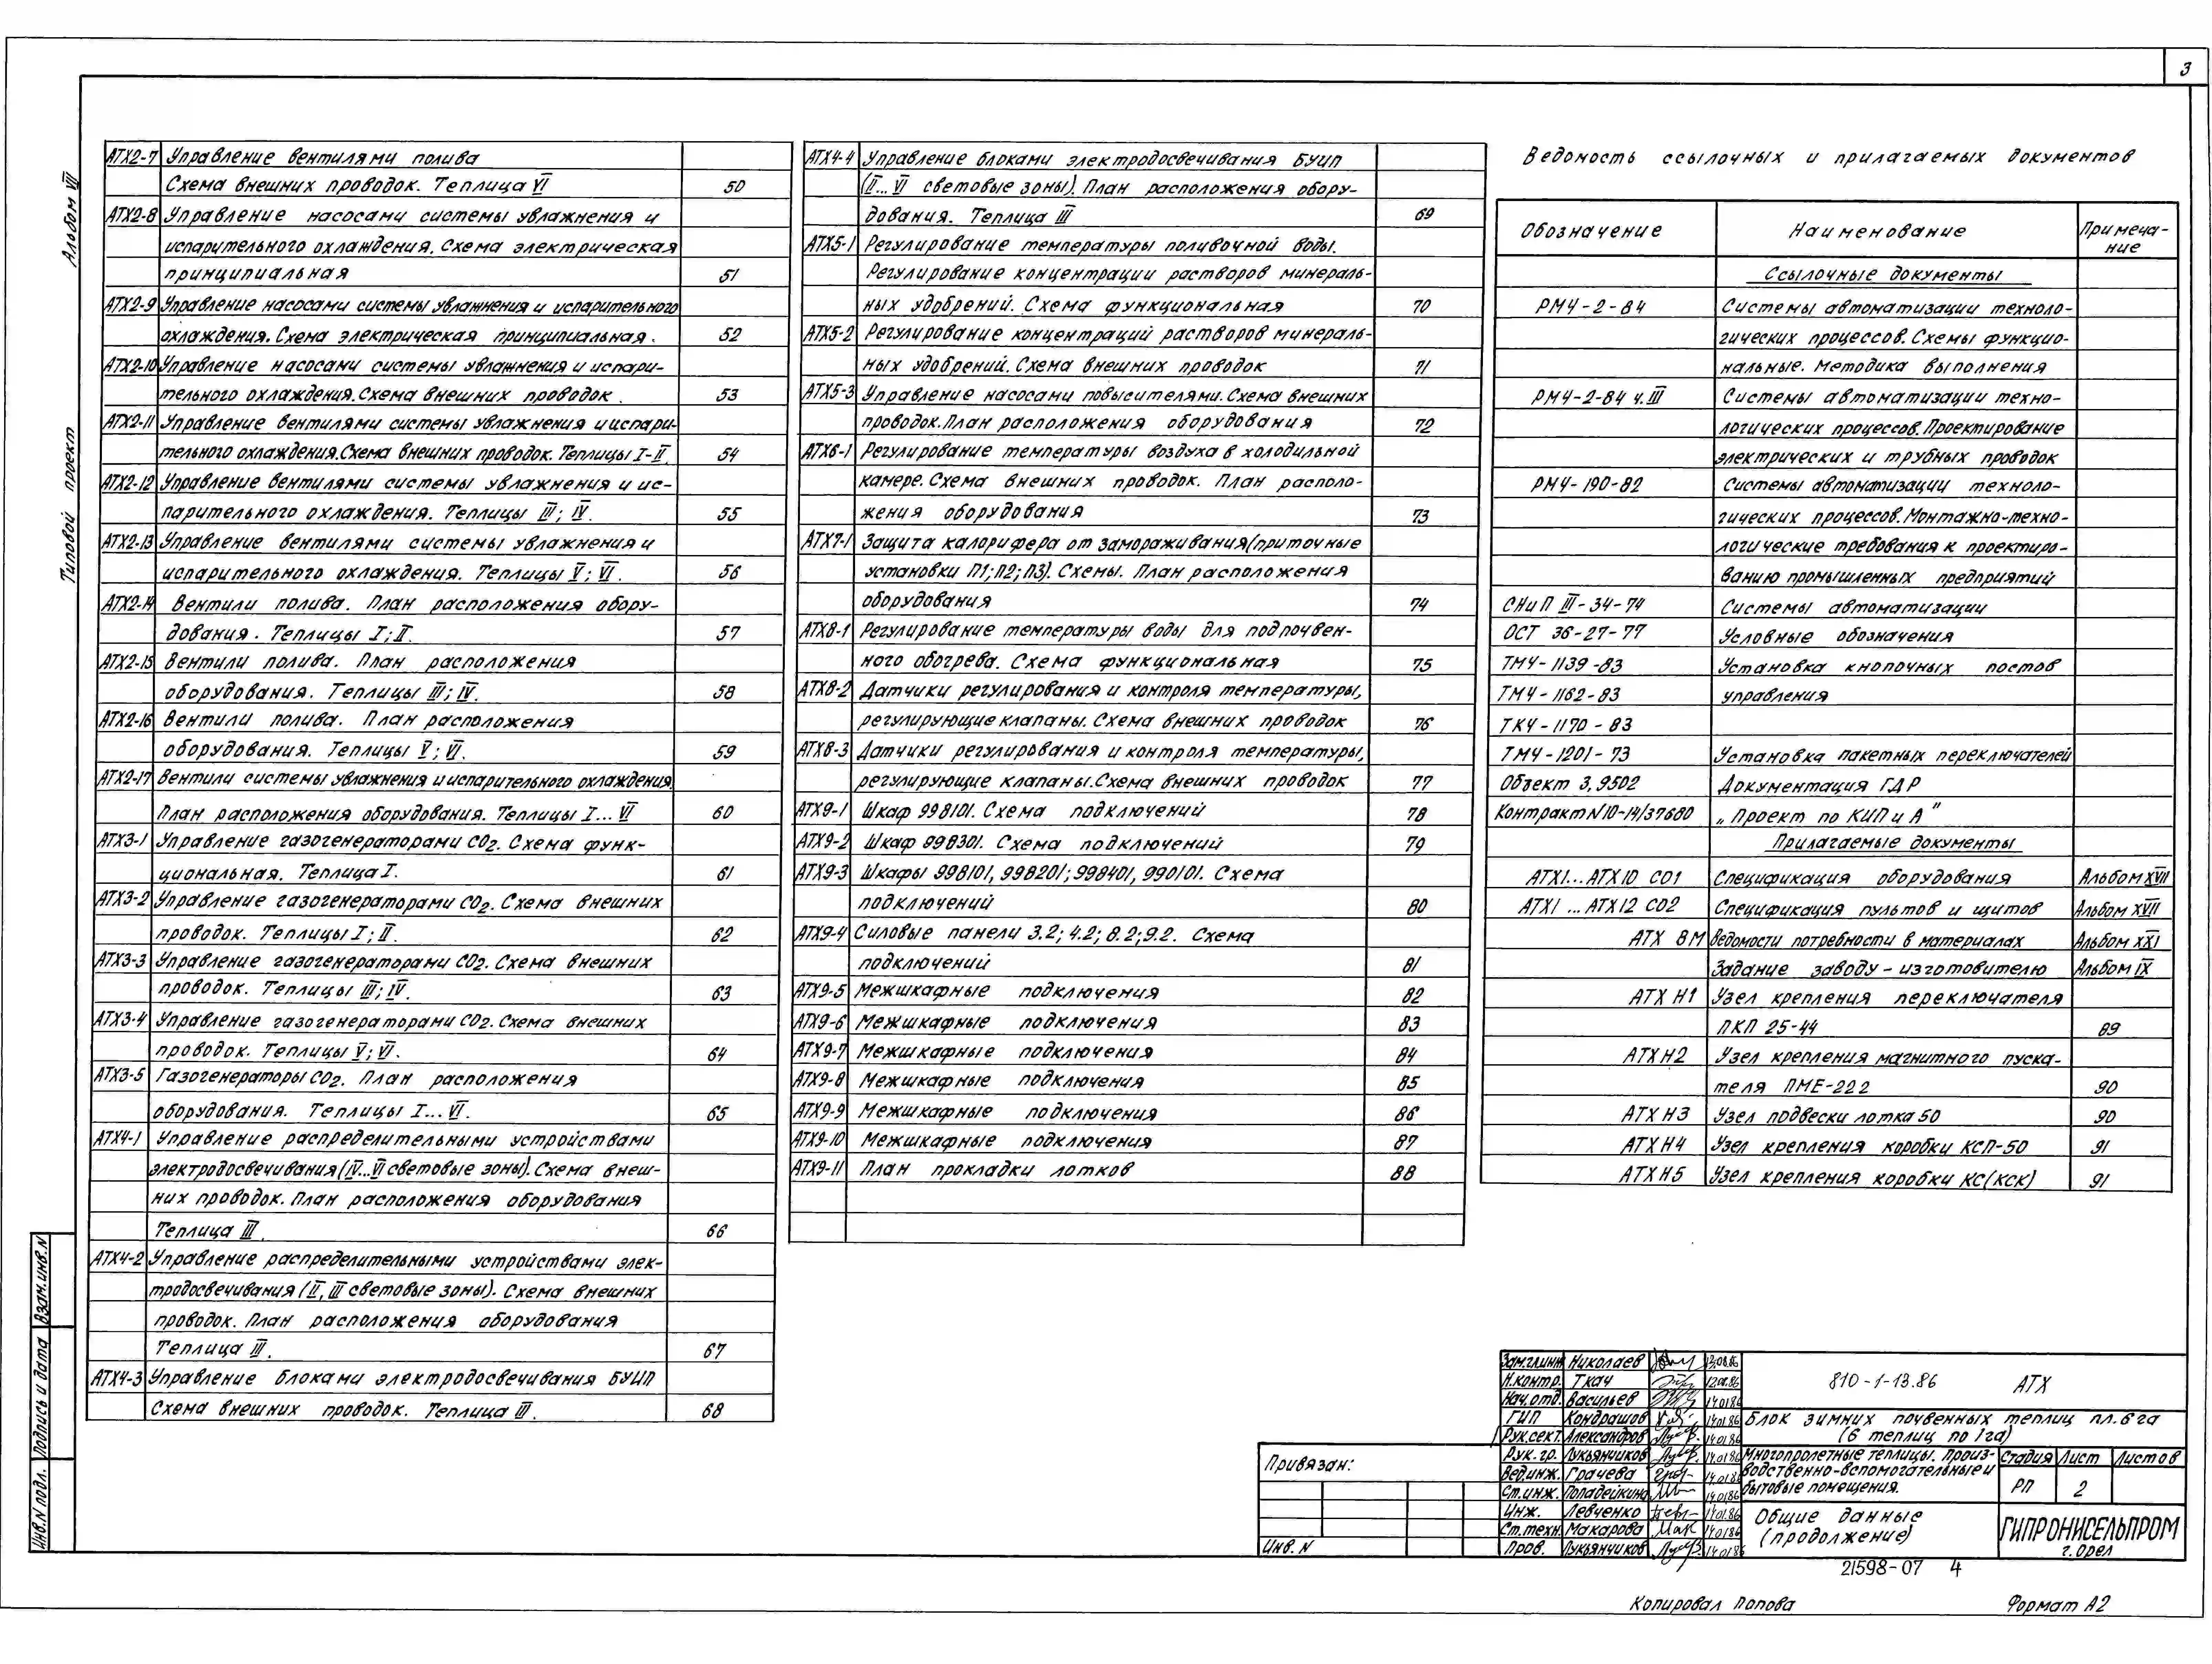 3
Альбом VII
Типовой проект
АТХ2-7 Управление вентилями полива
Схема внешних проводок. Теплица VI 50
АТХ2-8 Управление насосами системы увлажнения и
испарительного охлаждения. Схема электрическая
принципиальная 51
АТХ2-9 Управление насосами системы увлажнения и испарительного
охлаждения. Схема электрическая принципиальная. 52
АТХ2-10 Управление насосами системы увлажнения и испари-
тельного охлаждения. Схема внешних проводок. 53
АТХ2-11 Управление вентилями системы увлажнения и испари-
тельного охлаждения. Схема внешних проводок. Теплицы I-II. 54
АТХ2-12 Управление вентилями системы увлажнения и ис-
парительного охлаждения. Теплицы III; IV. 55
АТХ2-13 Управление вентилями системы увлажнения и
испарительного охлаждения. Теплицы V; VI. 56
АТХ2-14 Вентили полива. План расположения обору-
дования. Теплицы I; II. 57
АТХ2-15 Вентили полива. План расположения
оборудования. Теплицы III; IV. 58
АТХ2-16 Вентили полива. План расположения
оборудования. Теплицы V; VI. 59
АТХ2-17 Вентили системы увлажнения и испарительного охлаждения.
План расположения оборудования. Теплицы I...VI 60
АТХ3-1 Управление газогенераторами СО2. Схема функ-
циональная. Теплица I. 61
АТХ3-2 Управление газогенераторами СО2. Схема внешних
проводок. Теплицы I; II. 62
АТХ3-3 Управление газогенераторами СО2. Схема внешних
проводок. Теплицы III; IV. 63
АТХ3-4 Управление газогенераторами СО2. Схема внешних
проводок. Теплицы V; VI. 64
АТХ3-5 Газогенераторы СО2. План расположения
оборудования. Теплицы I...VI. 65
АТХ4-1 Управление распределительными устройствами
электродосвечивания (IV...VI световые зоны). Схема внеш-
них проводок. План расположения оборудования
Теплица III. 66
АТХ4-2 Управление распределительными устройствами элек-
тродосвечивания (II, III световые зоны). Схема внешних
проводок. План расположения оборудования
Теплица III. 67
АТХ4-3 Управление блоками электродосвечивания БУИП
Схема внешних проводок. Теплица III. 68
АТХ4-4 Управление блоками электродосвечивания БУИП
(II...VI световые зоны). План расположения обору-
дования. Теплица III 69
АТХ5-1 Регулирование температуры поливочной воды.
Регулирование концентрации растворов минераль-
ных удобрений. Схема функциональная 70
АТХ5-2 Регулирование концентраций растворов минераль-
ных удобрений. Схема внешних проводок 71
АТХ5-3 Управление насосами повысителями. Схема внешних
проводок. План расположения оборудования 72
АТХ6-1 Регулирование температуры воздуха в холодильной
камере. Схема внешних проводок. План располо-
жения оборудования 73
АТХ7-1 Защита калорифера от замораживания (приточные
установки П1; П2; П3). Схемы. План расположения
оборудования 74
АТХ8-1 Регулирование температуры воды для подпочвен-
ного обогрева. Схема функциональная 75
АТХ8-2 Датчики регулирования и контроля температуры,
регулирующие клапаны. Схема внешних проводок 76
АТХ8-3 Датчики регулирования и контроля температуры,
регулирующие клапаны. Схема внешних проводок 77
АТХ9-1 Шкаф 998101. Схема подключений 78
АТХ9-2 Шкаф 998301. Схема подключений 79
АТХ9-3 Шкафы 998101, 998201; 998401, 990101. Схема
подключений 80
АТХ9-4 Силовые панели 3.2; 4.2; 8.2; 9.2. Схема
подключений 81
АТХ9-5 Межшкафные подключения 82
АТХ9-6 Межшкафные подключения 83
АТХ9-7 Межшкафные подключения 84
АТХ9-8 Межшкафные подключения 85
АТХ9-9 Межшкафные подключения 86
АТХ9-10 Межшкафные подключения 87
АТХ9-11 План прокладки лотков 88
Ведомость ссылочных и прилагаемых документов
Обозначение Наименование Примеча-
ние
Ссылочные документы
РМ4-2-84 Системы автоматизации техноло-
гических процессов. Схемы функцио-
нальные. Методика выполнения
РМ4-2-84 ч. III Системы автоматизации техно-
логических процессов. Проектирование
электрических и трубных проводок
РМ4-190-82 Системы автоматизации техноло-
гических процессов. Монтажно-техно-
логические требования к проектиро-
ванию промышленных предприятий
СНиП III-34-74 Системы автоматизации
ОСТ 36-27-77 Условные обозначения
ТМ4-1139-83 Установка кнопочных постов
ТМ4-1162-83 управления
ТК4-1170-83
ТМ4-1201-73 Установка пакетных переключателей
Объект 3.9502 Документация ГДР
Контракт N10-14/37680 „Проект по КИП и А"
Прилагаемые документы
АТХ1...АТХ10 СО1 Спецификация оборудования Альбом XVII
АТХ1...АТХ12 СО2 Спецификация пультов и щитов Альбом XVII
АТХ ВМ Ведомости потребности в материалах Альбом XXI
Задание заводу-изготовителю Альбом IX
АТХ Н1 Узел крепления переключателя
ПКП 25-44 89
АТХ Н2 Узел крепления магнитного пуска-
теля ПМЕ-222 90
АТХ Н3 Узел подвески лотка 50 90
АТХ Н4 Узел крепления коробки КСП-50 91
АТХ Н5 Узел крепления коробки КС(КСК) 91
Взам.инв.N
Подпись и дата
Инв.N подл.
Привязан:
Инв. N
Зам.гл.инж Николаев 13.01.86
Н.контр. Ткач 12.01.86
Нач.отд. Васильев 14.01.86
ГИП Кондрашов 14.01.86
Рук.сект. Александров 14.01.86
Рук.гр. Лукьянчиков 14.01.86
Вед.инж. Грачева 14.01.86
Ст.инж. Поладейкина 14.01.86
Инж. Левченко 14.01.86
Ст.техн. Макарова 14.01.86
Пров. Лукьянчиков 14.01.86
810-1-13.86 АТХ
Блок зимних почвенных теплиц пл. 6 га
(6 теплиц по 1га)
Многопролетные теплицы. Произ-
водственно-вспомогательные и
бытовые помещения.
Стадия Лист Листов
РП 2
Общие данные
(продолжение)
ГИПРОНИСЕЛЬПРОМ
г. Орел
21598-07 4
Копировал Попова
Формат А2